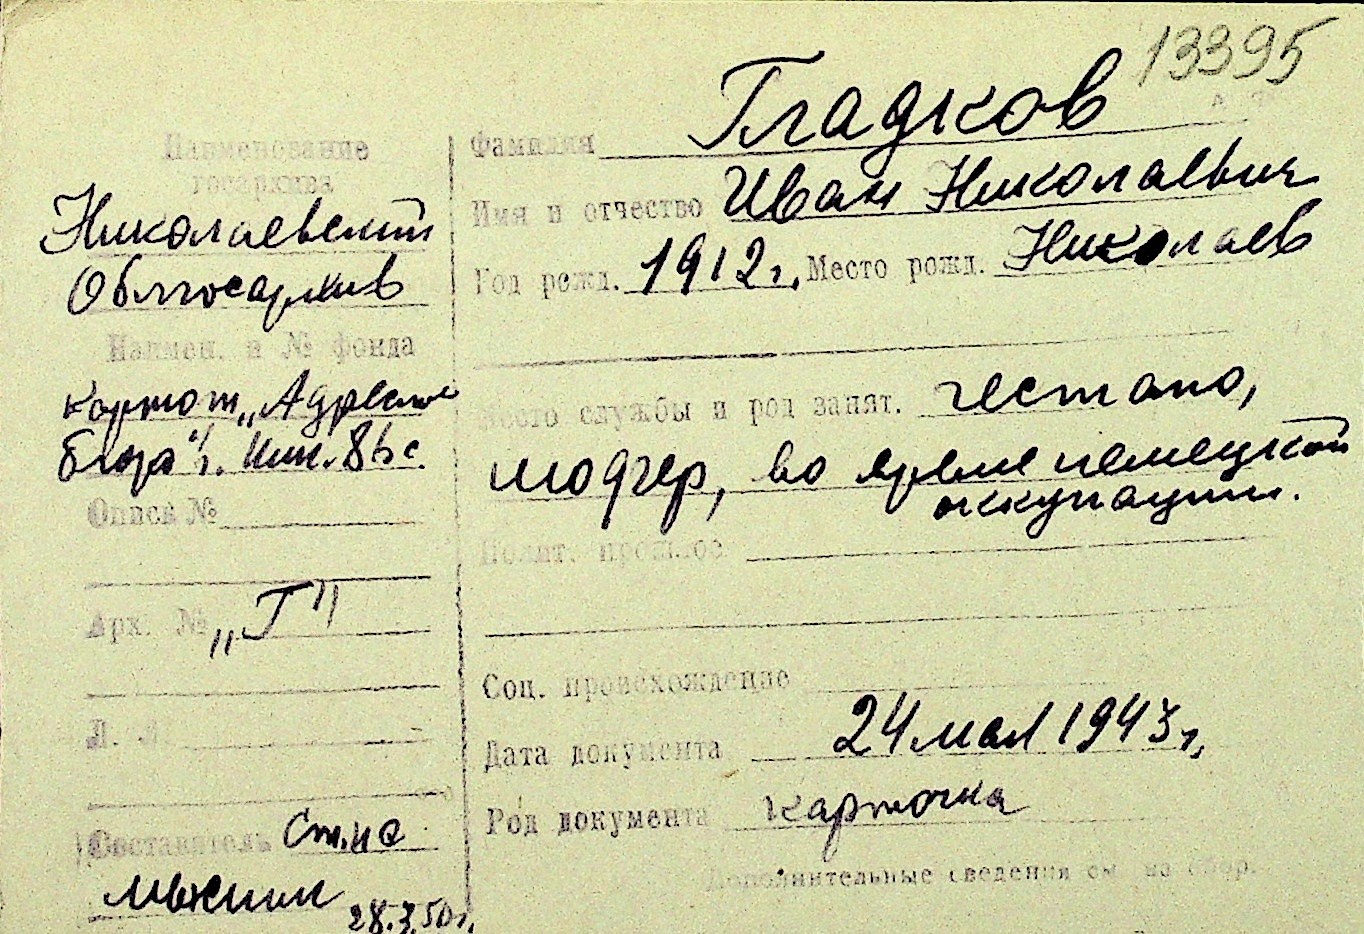 13395
Наименование
госархива
Николаевский
Облгосархив
Наимен. и № фонда
картот. „Адресное
бюро“.
Опись №
Арх. № „Г“
Л. Л.
Составитель
28.3.50г.
Фамилия Гладков
Имя и отчество Иван Николаевич
Год рожд. 1912г. Место рожд. Николаев
Место службы и род занят. гестапо,
шофер, во время немецкой
оккупации.
Полит. прошлое
Соц. происхождение
Дата документа 24 мая 1943г.
Род документа карточка
Дополнительные сведения см. на обор.